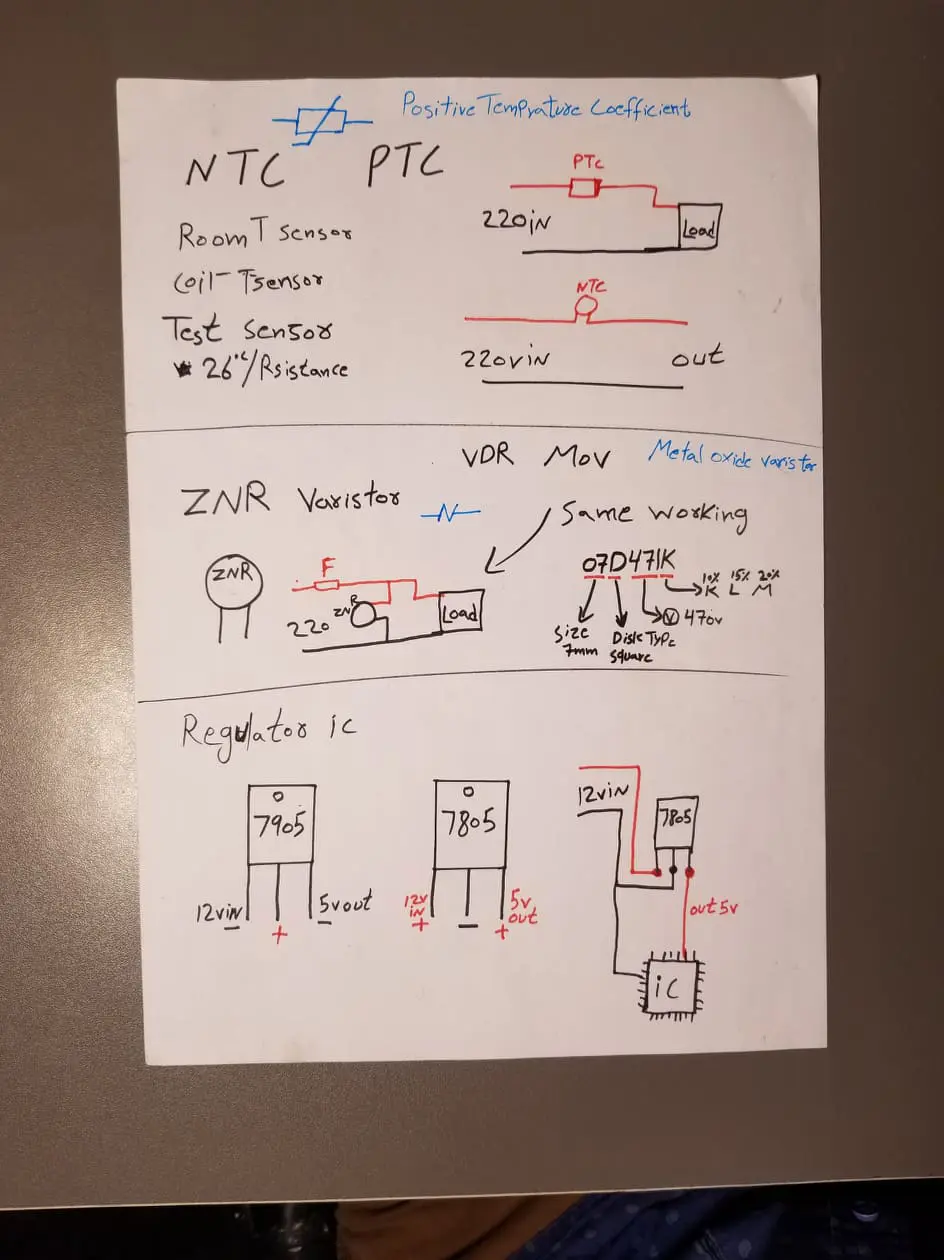 Positive Temprature Coefficient
NTC PTC
PTC
Room T sensor
220in
Load
Coil-Tsensor
NTC
Test sensor
220vin out
* 26°c/Rsistance
VDR Mov Metal oxide varistor
ZNR Varistor
Same working
ZNR
F
07D471K
10% 15% 20%
K L M
ZNR
Load
220
V 470v
Size
7mm
Disk Type
square
Regulator ic
7905
7805
12vin
7805
12vin
-
+
5vout
-
12v
in
+
-
5v
out
+
out5v
iC